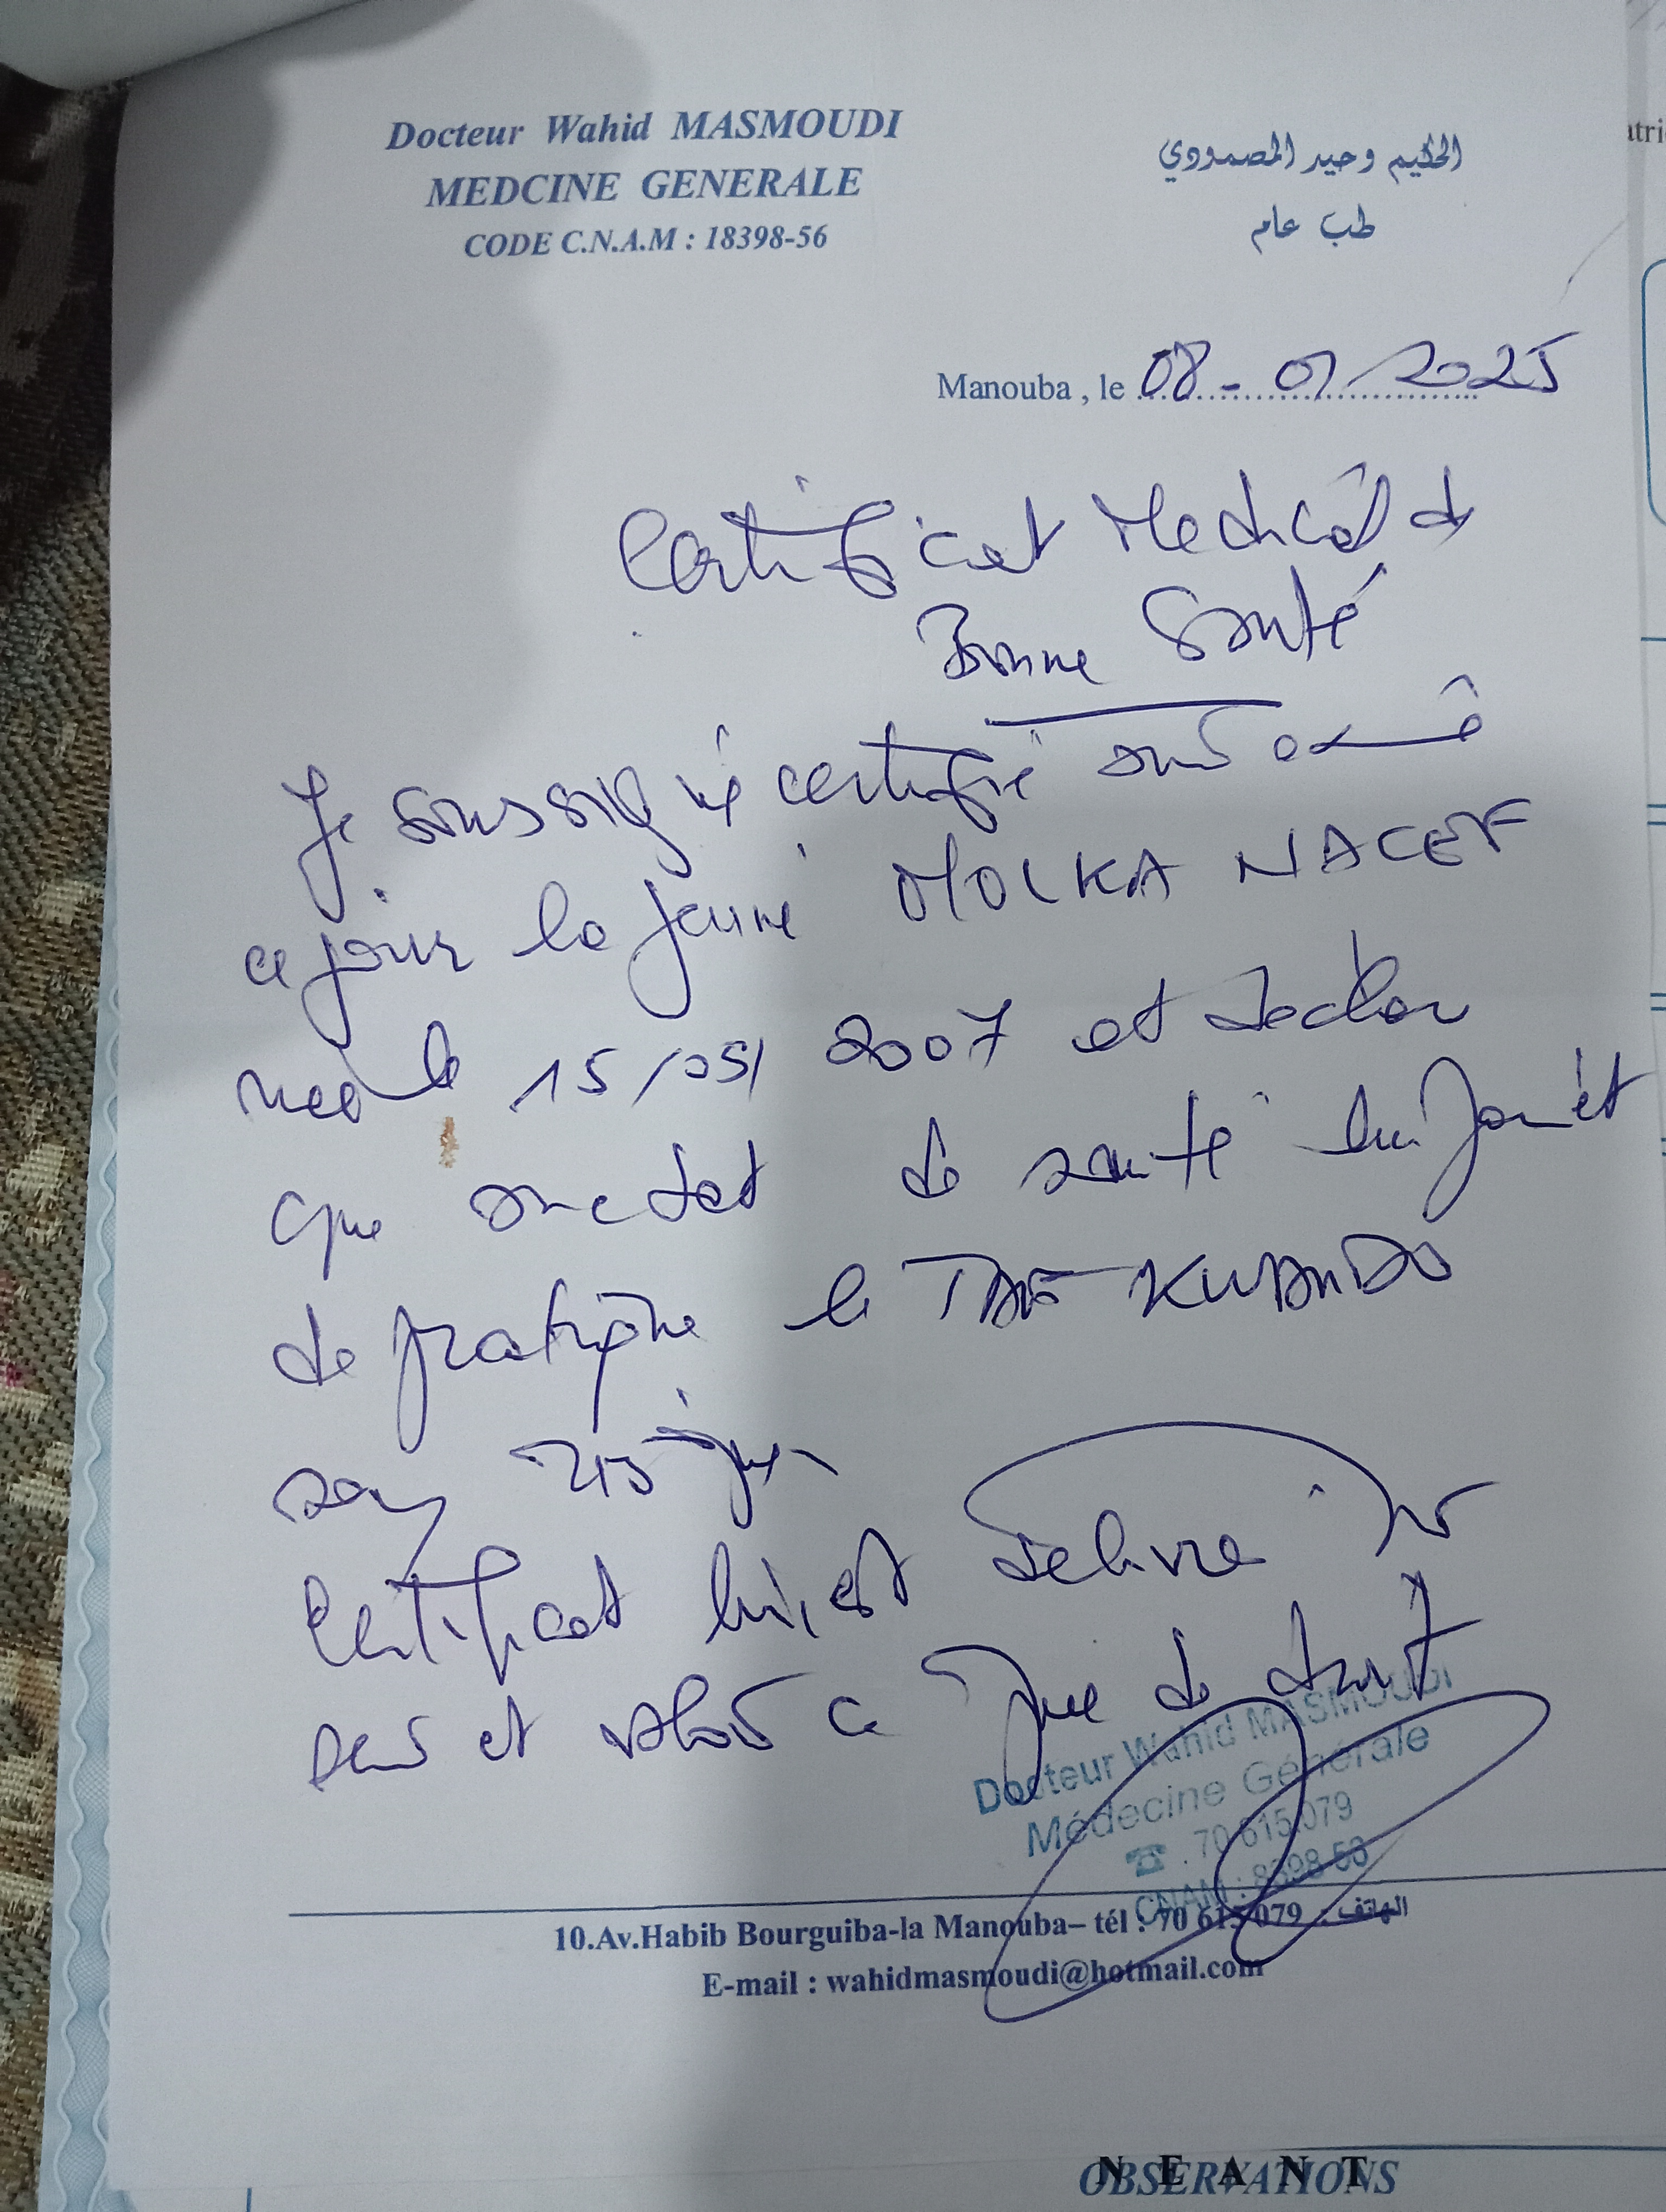 Docteur Wahid MASMOUDI
MEDCINE GENERALE
CODE C.N.A.M : 18398-56
الحكيم وحيد المصمودي
طب عام
Manouba , le 08 - 01 / 2025
Certificat Medical de
Bonne Santé
Je soussigné certifie avoir examiné
ce jour la jeune MOLKA NACEF
née le 15/05/2007 et declare
que son etat de santé lui permet
de pratiquer le TAE KWANDO
sans risque
Certificat lui est delivré pour
servir et valoir ce que de droit
Docteur Wahid MASMOUDI
Médecine Générale
☎ : 70 615 079
CNAM : 8398-56
10.Av.Habib Bourguiba-la Manouba– tél : 70 615 079 : الهاتف
E-mail : wahidmasmoudi@hotmail.com
NEANT
OBSERVATIONS